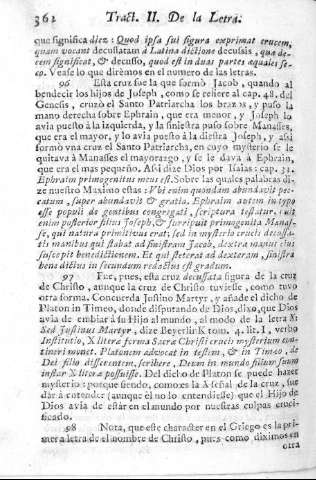 362 Tract. II. De la Letra.
que significa diez: Quod ipsa sui figura exprimat crucem,
quam vocant decussatam à Latina dictione decussis, qua de-
cem significat, & decusso, quod est in duas partes æquales se-
co. Vease lo que dirèmos en el numero de las letras.
96 Esta cruz fue la que formò Jacob, quando al
bendecir los hijos de Joseph, como se refiere al cap. 48. del
Genesis, cruzò el Santo Patriarcha los brazos, y puso la
mano derecha sobre Ephrain, que era menor, y Joseph lo
avia puesto à la izquierda, y la siniestra puso sobre Manasses,
que era el mayor, y lo avia puesto à la diestra Joseph, y assi
formò vna cruz el Santo Patriarcha, en cuyo mysterio se le
quitava à Manasses el mayorazgo, y se le dava à Ephrain,
que era el mas pequeño. Assi dize Dios por Isaias: cap. 31.
Ephraim primogenitus meus est. Sobre las quales palabras di-
ze nuestro Maximo estas: Vbi enim quondam abundavit pec-
catum, super abundavit & gratia. Ephraim autem in typo
esse populi de gentibus congregati, scriptura testatur, ut
enim posterior filius Joseph, & surripuit primogenita Manas-
se, qui natura primitivus erat; sed in mysterio crucis decussa-
tis manibus qui stabat ad sinistram Jacob, dextra manus eius
suscepit benedictionem. Et qui steterat ad dexteram, sinistra
benedictius in secundum redactus est gradum.
97 Fue, pues, esta cruz decussata figura de la cruz
de Christo, aunque la cruz de Christo tuviesse, como tuvo
otra forma. Concuerda Justino Martyr, y añade el dicho de
Platon in Timeo, donde disputando de Dios, dixo, que Dios
avia de embiar à su Hijo al mundo, el modo de la letra X:
Sed Justinus Martyr, dize Beyerlir K tom. 4. lit. I, verbo
Institutio, X litera forma Sacra Christi crucis mysterium con-
tineri monet. Platonem advocat in testem, & in Timeo, de
Dei filio disserentem, scribere, Deum in mundo filium suum
instar X litera posuisse. Del dicho de Platon se puede hazer
mysterio: porque siendo, como es la X señal de la cruz, fue
dàr à entender (aunque èl no lo entendiesse) que el Hijo de
Dios avia de estàr en el mundo por nuestras culpas cruci-
ficado.
98 Nota, que este character en el Griego es la pri-
mera letra de el nombre de Christo, pues como diximos en
otra